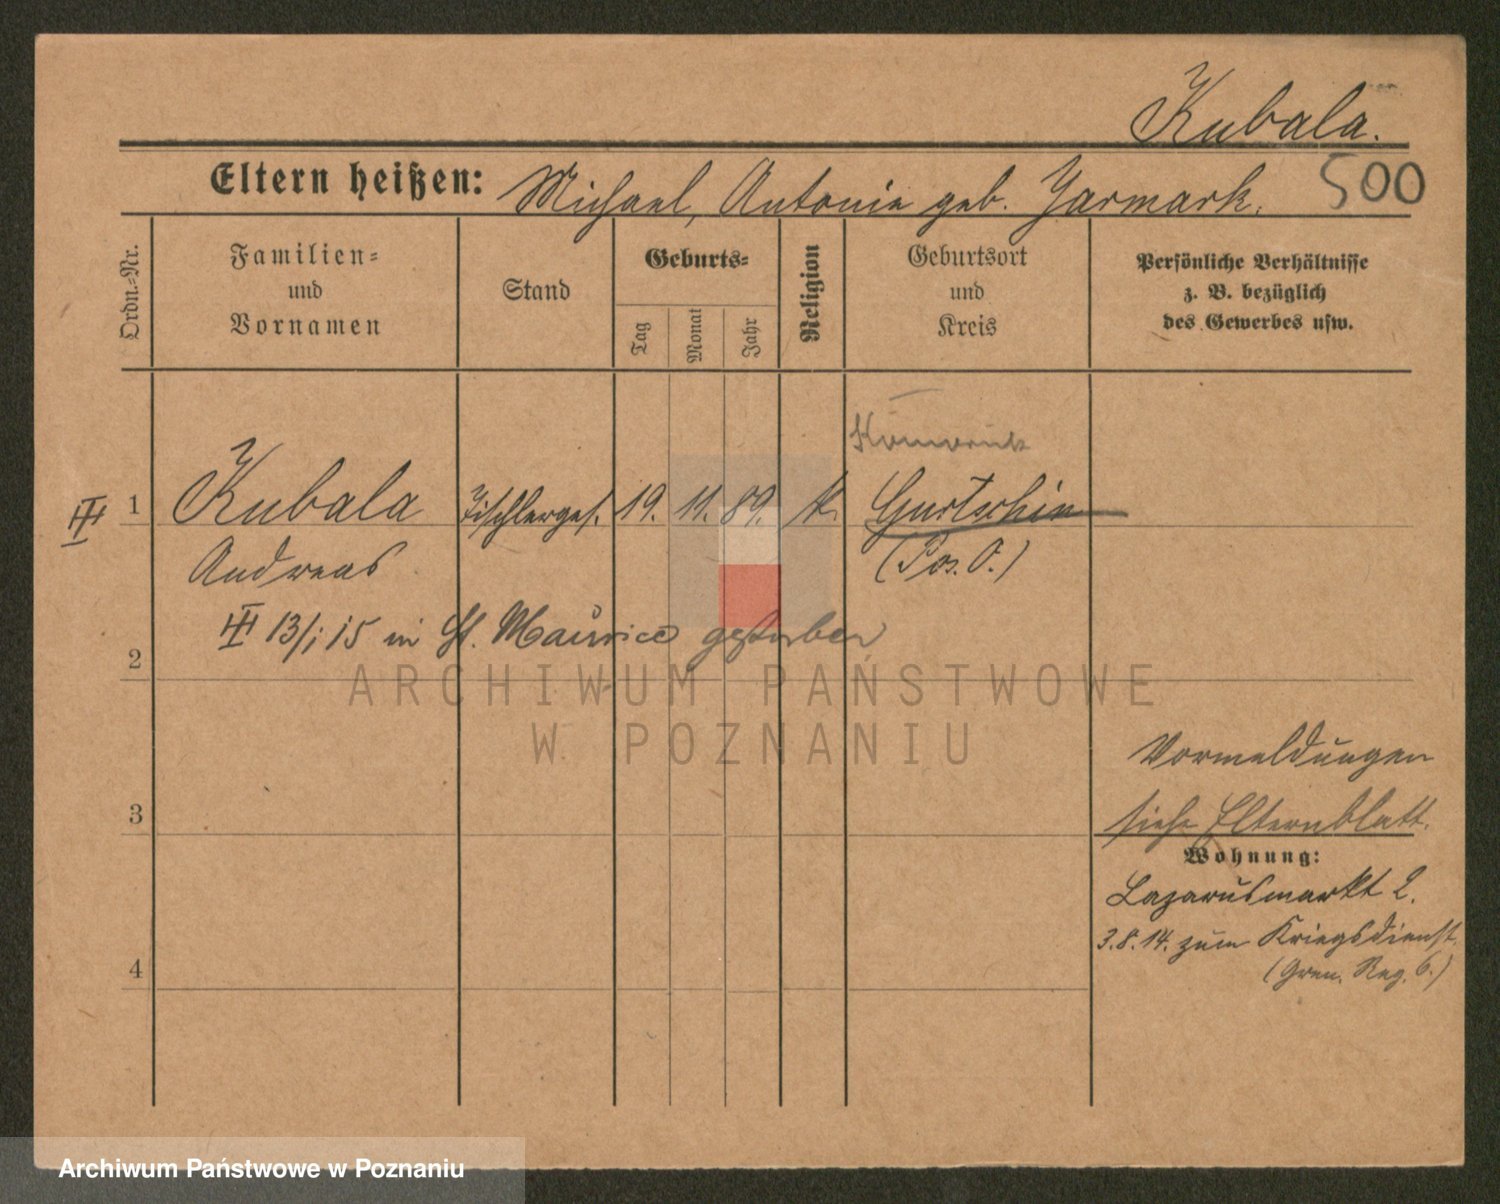 Kubala.
Eltern heißen: Michael, Antonie geb. Jarmark.
500
Ordn.-Nr.
Familien-
und
Vornamen
Stand
Geburts-
Tag
Monat
Jahr
Religion
Geburtsort
und
Kreis
Persönliche Verhältnisse
z. B. bezüglich
des Gewerbes usw.
1 Kubala Tischlerges. 19. 11. 89. k. Gurtschin
Andreas (Pos. O.)
13/1 15 in St. Maurice gestorben
2
ARCHIWUM PAŃSTWOWE
W POZNANIU
Vormeldungen
3
siehe Elternblatt.
Wohnung:
Lazarusmarkt 2.
3.8.14. zum Kriegsdienst
4
(Gren. Reg. 6.)
Archiwum Państwowe w Poznaniu